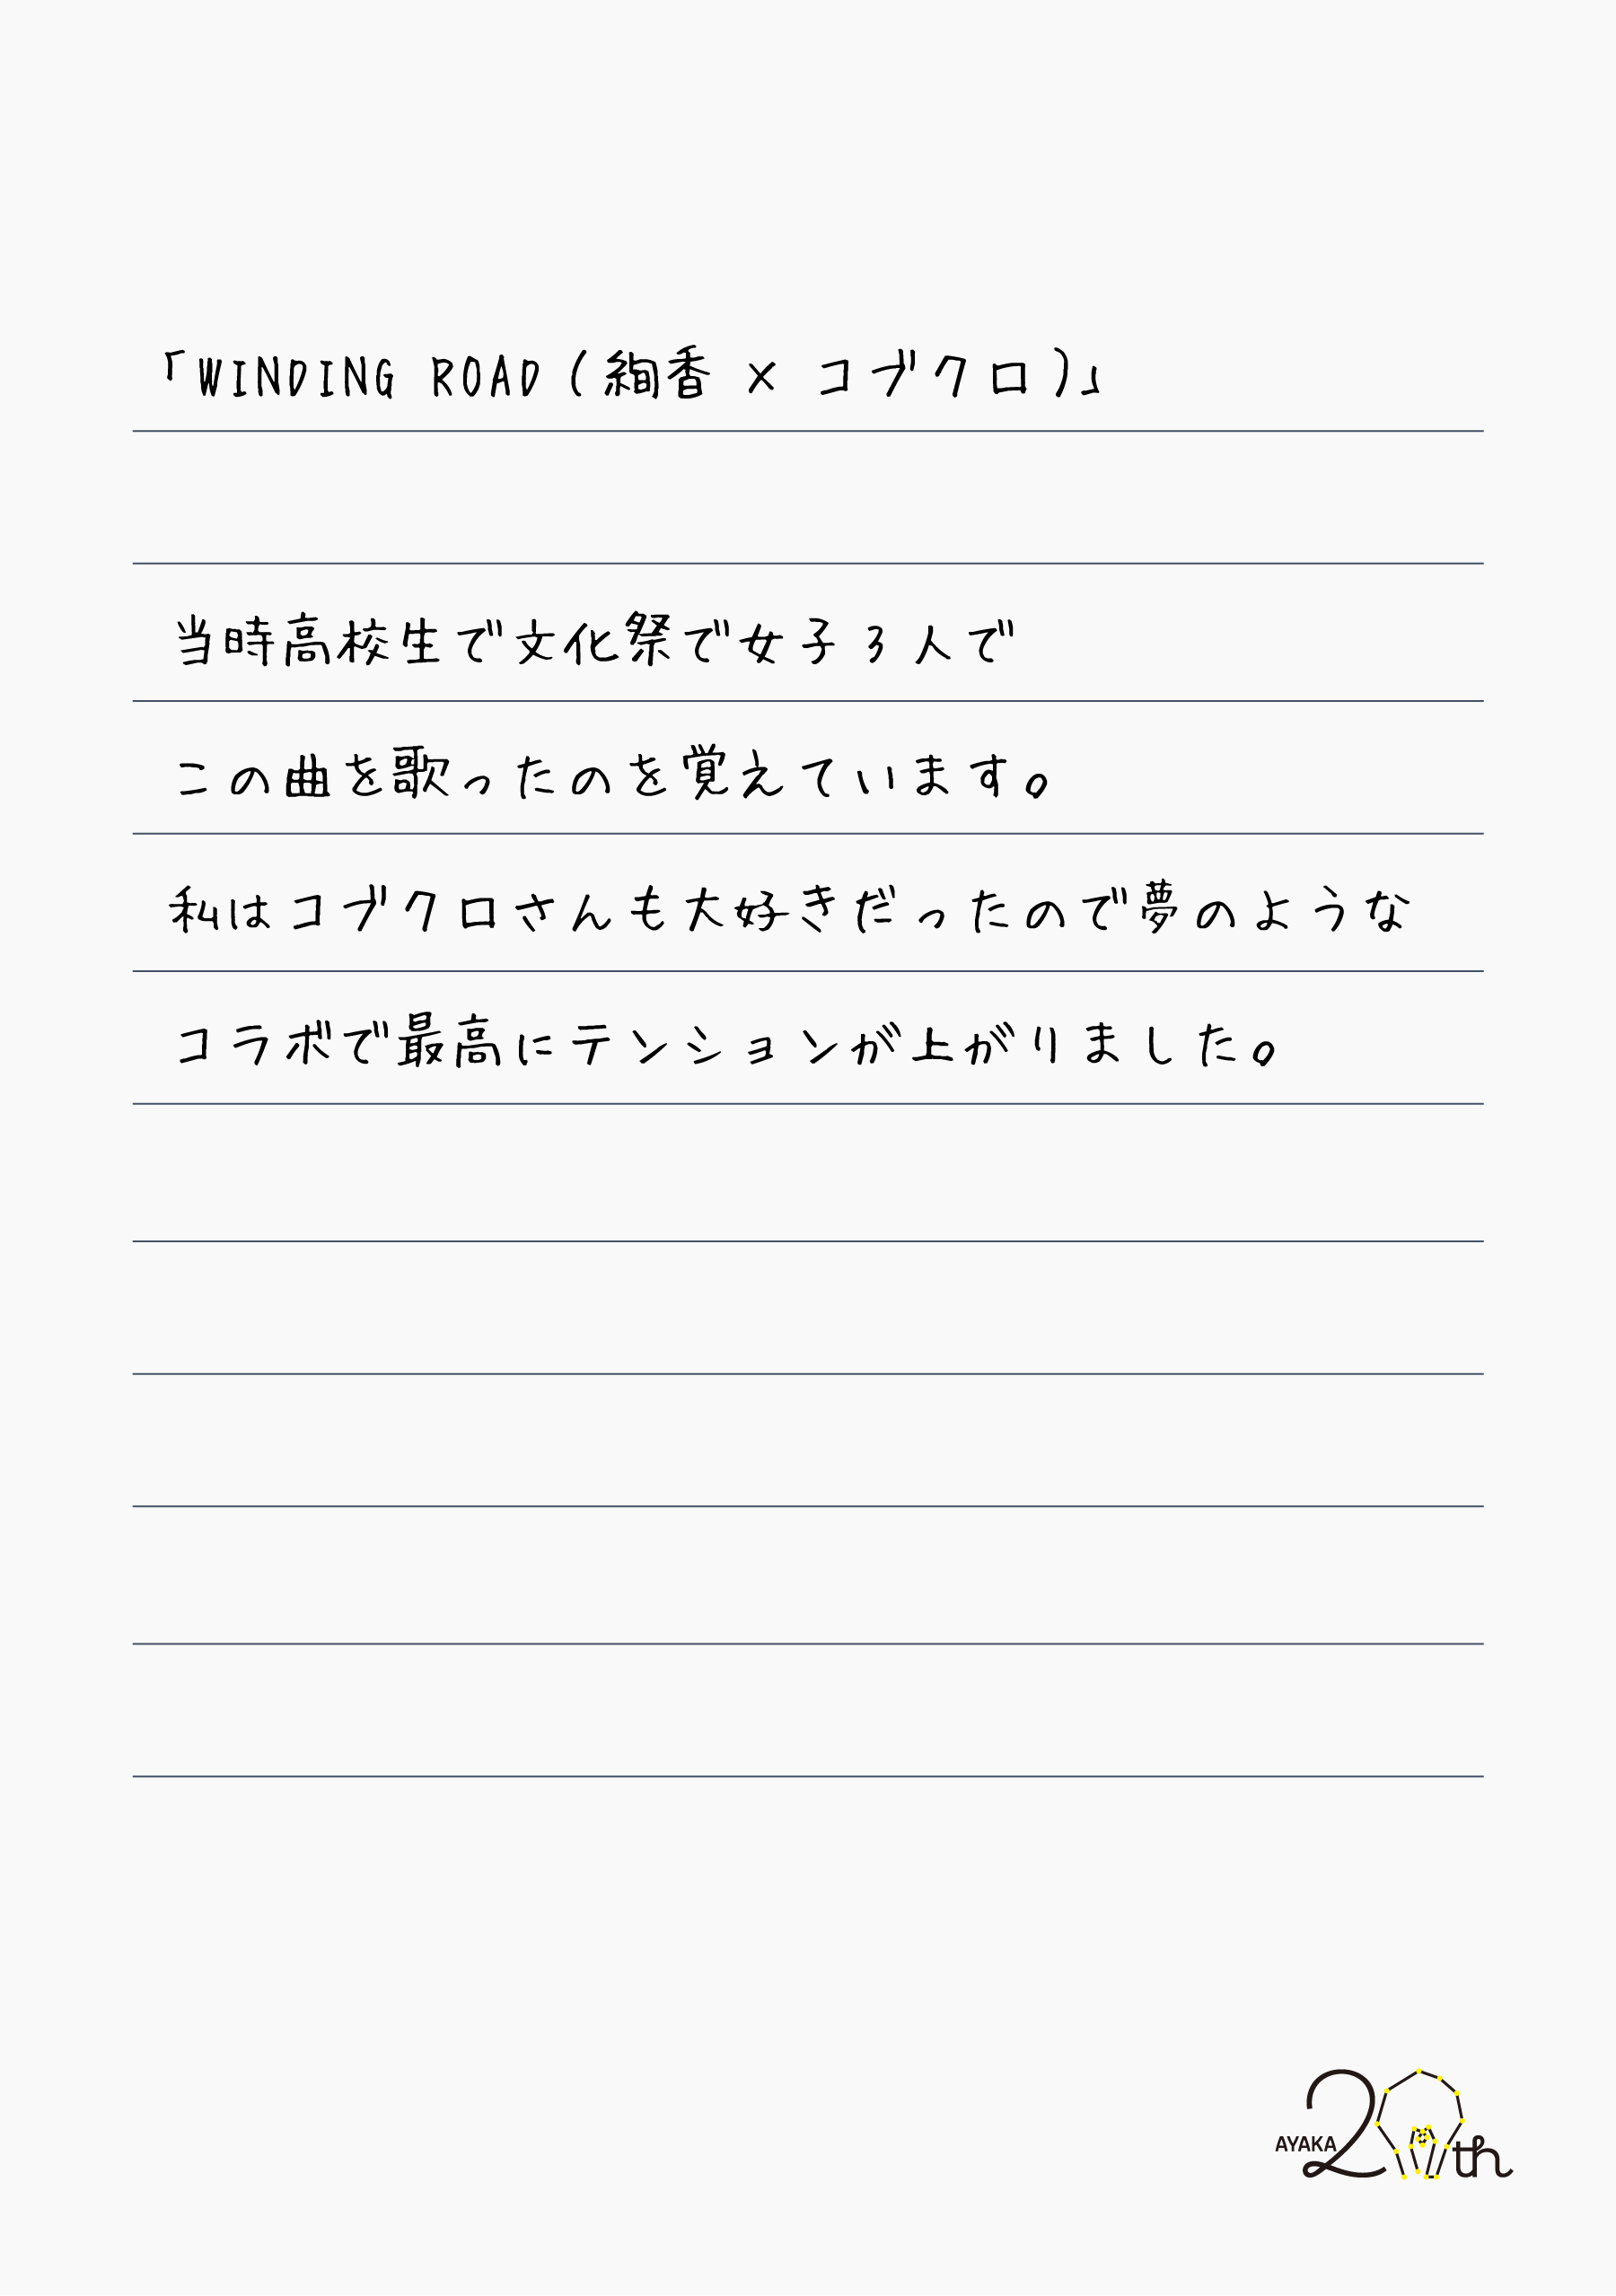 「WINDING ROAD（絢香 × コブクロ）」
当時高校生で文化祭で女子3人で
この曲を歌ったのを覚えています。
私はコブクロさんも大好きだったので夢のような
コラボで最高にテンションが上がりました。
AYAKA 20th